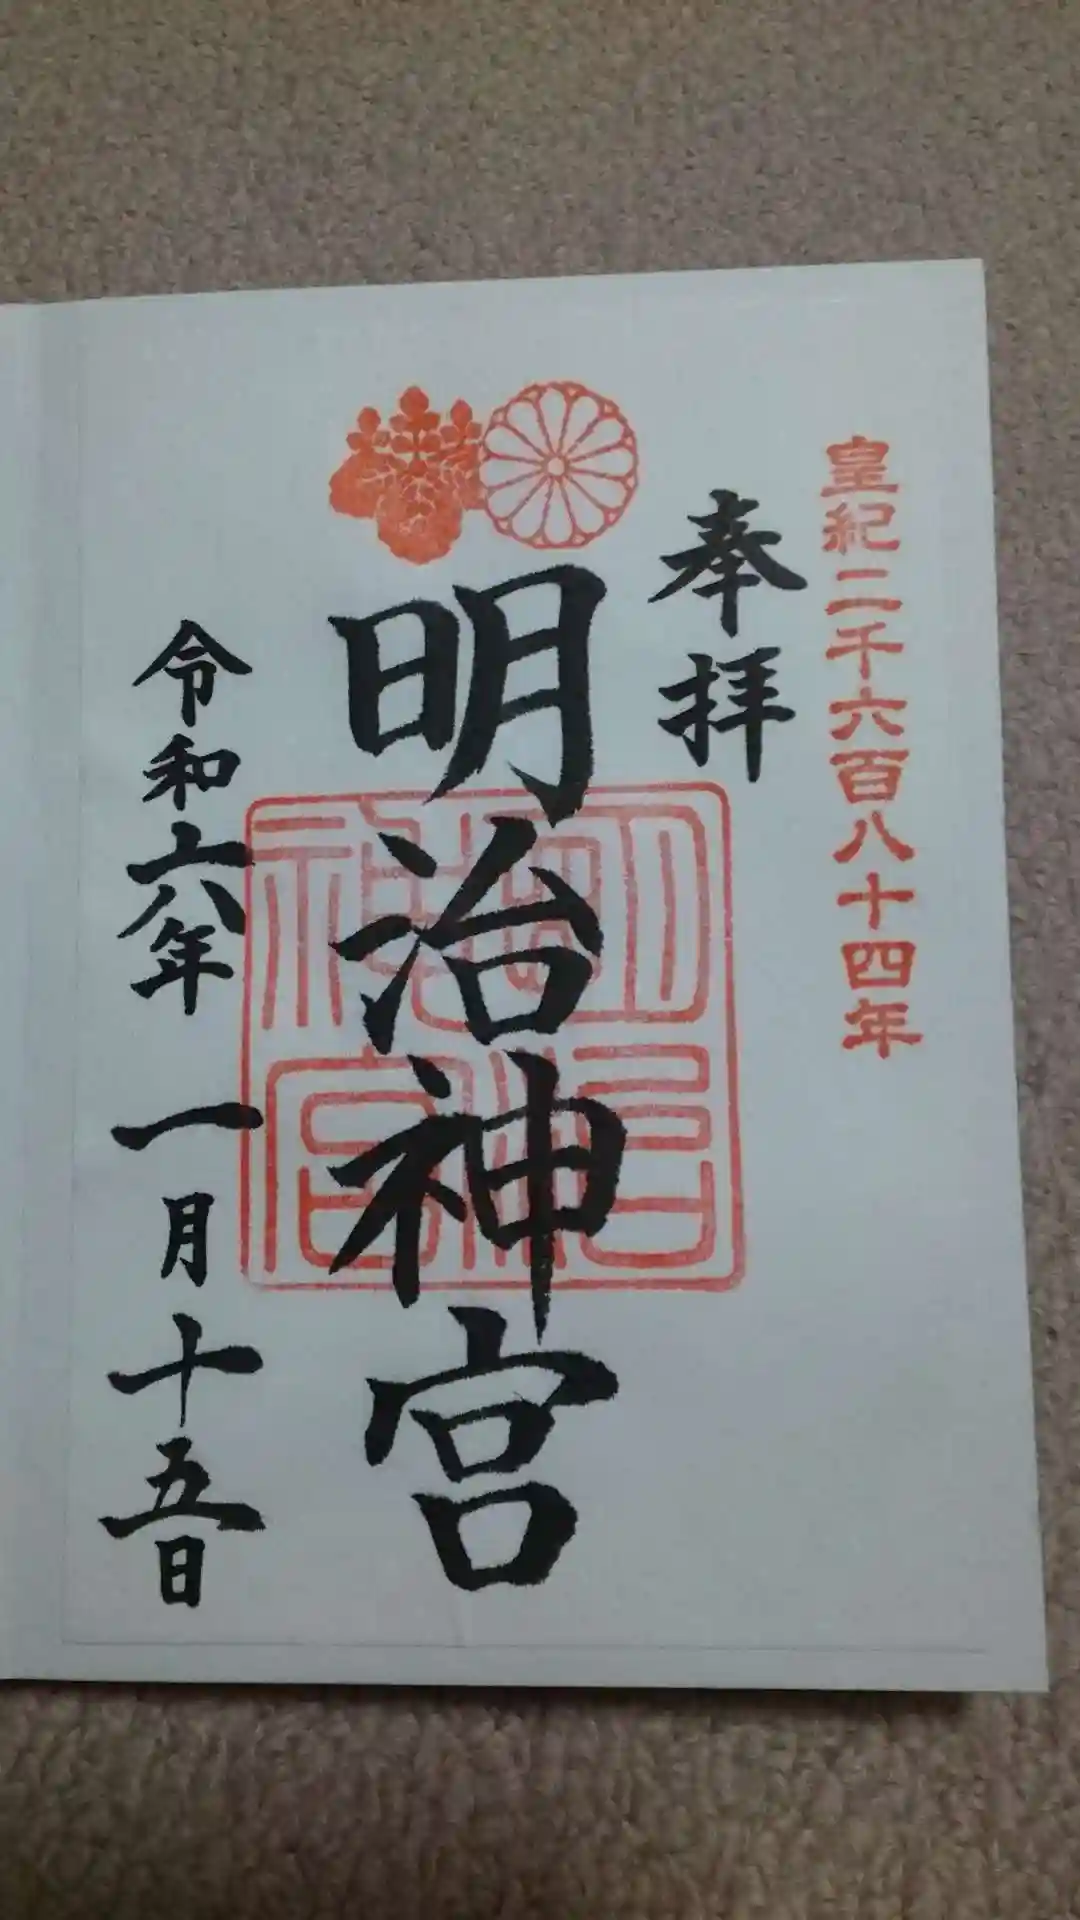 皇紀二千六百八十四年
奉拝
明治神宮
明治神宮
令和六年 一月十五日